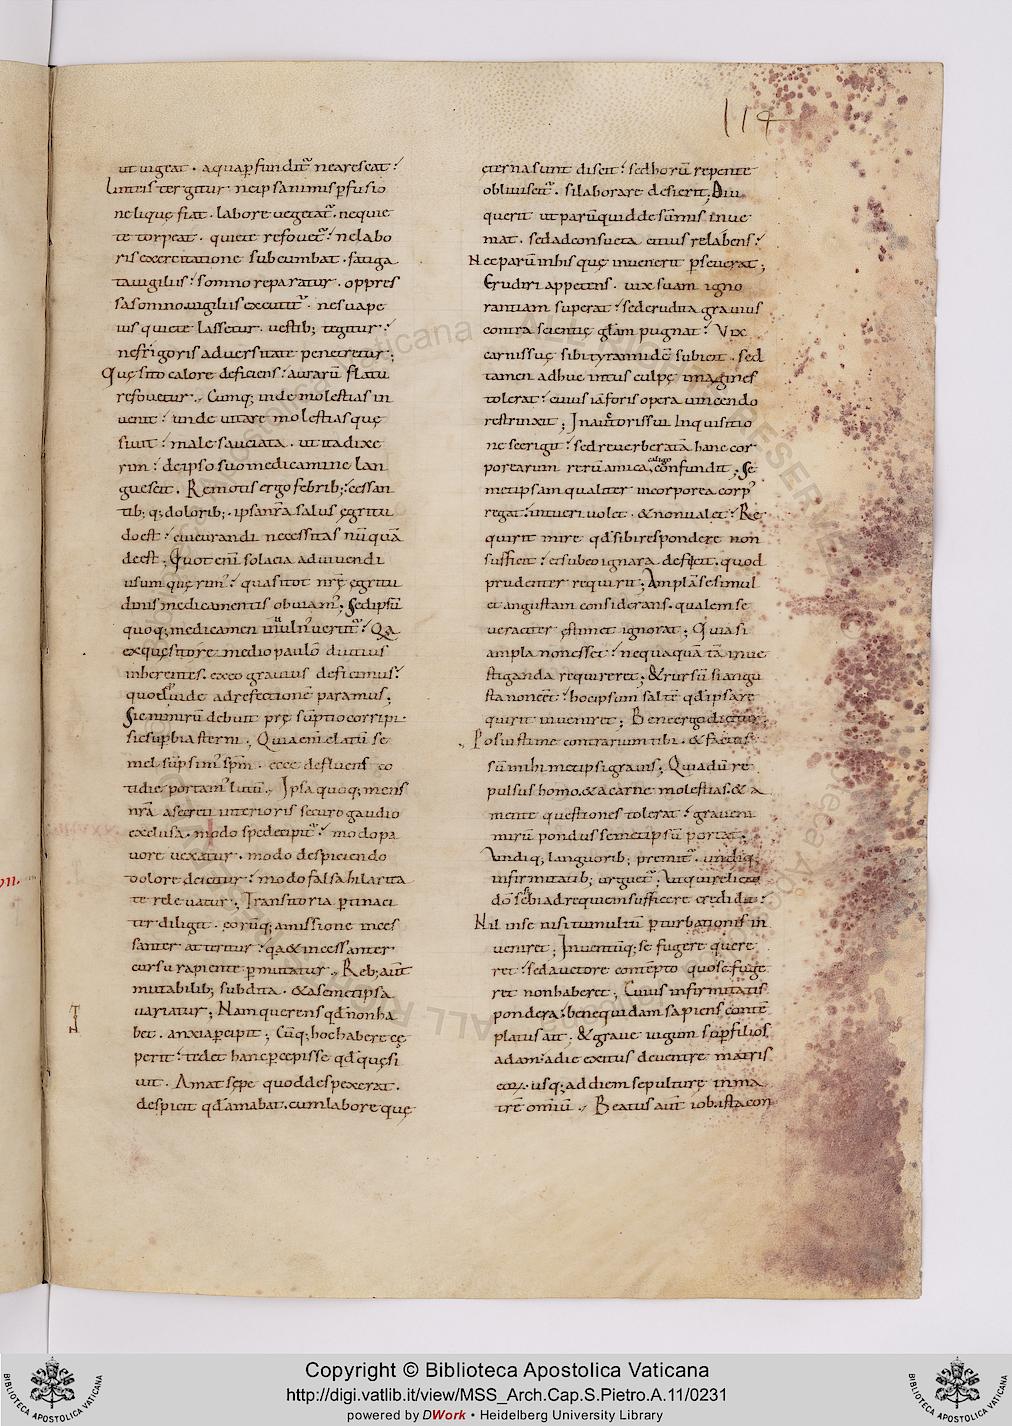 114
ut uigeat . aqua ꝑfunditᷣ ne areseat :́
Linteis tergitur ne ipsa nimis ꝑfusio
ne liquę fiat . labore uegetatᷣ . ne quie
te torpeat . quiete refouetᷣ :́ ne labo
ris exercitatione subcumbat . fatiga
ta uigiliis :́ somno reparatur . oppres
sa somno uigiliis excutitᷣ . ne suape
ius quiete lassetur . uestib; tegitur :́
ne frigoris aduersitate penetretur ;
Quęsito calore deficiens :́ aurarū flatu
refouetur . Cumq; inde molestias in
uenit :́ unde uitare molestias quę
siuit :́ male sauciata . ut ita dixe
rim :́ de ipso suo medicamine lan
guescit . Remotis ergo febrib; :́ cessan
tib; q; dolorib; . ipsa nr̄a salus ęgritu
do est :́ cui curandi necessitas nūquā
deest ; Quot eni solacia ad uiuendi
usum quęrimᷣ :́ quasi tot nrę ęgritu
dinis medicamentis obuiamᷣ ; Sed ipsū
quoq; medicamen in uulnᷣ uertitᷣ :́ Qa
exquęsito remedio paulo diutius
inherentes . ex eo grauius deficimus :́
quod ꝓuide ad refectionē paramus ;
Sic nimirū debuit pręsūptio corripi .
sic supbia sterni . Quia eni elatū se
mel sūpsimᷣ spm . ecce defluens co
tidie portamᷣ lutū . Ipsa quoq; mens
nr̄a a secreti interioris securo gaudio
exclusa . modo spe decipitᷣ :́ modo pa
uore uexatur . modo despiciendo
dolore deicitur :́ modo falsa hilarita
te releuatur ; Transitoria ꝑtinaci
ter diligit . eorūq; amissione inces
santer atteritur :́ qa & incessanter
cursu rapiente ꝑmutatur . Reb; aūt
mutabilib; subdita . & a semetipsa
uariatur ; Nam querens qd non ha
bet . anxia ꝑcipit ; Cūq; hoc habere cę
perit :́ tedet hanc ꝑcepisse qd quęsi
uit . Amat sępe quod despexerat .
despicit qd amabat . cum labore quę
eterna sunt discit :́ sed horū repente
obliuiscitᷣ . si laborare desierit ; Diu
querit ut parū quid de sūmis inue
niat . sed ad consueta citius relabens :́
Nec parum in his quę inuenerit ꝑseuerat ;
Erudiri appetens . uix suam igno
rantiam superat :́ sed erudita grauius
contra scientię glam pugnat :́ Vix
carnis suę sibi tyrannidē subicit . sed
tamen adhuc intus culpę imagines
tolerat :́ cuius ia foris opera uincendo
restrinxit ; In auctoris sui Inquisitio
ne se erigit :́ sed reuerberatā hanc cor
porearum rerū amica caligo confundit ; Se
metipsam qualiter incorporea corpᷣ
regat :́ intueri uolet . & non ualet :́ Re
quirit mire qd sibi respondere non
sufficit :́ et sub eo ignara deficit . quod
prudenter requirit ; Amplā se simul
et angustam considerans . qualem se
ueraciter ęstimet ignorat ; Quia si
ampla non esset :́ nequaquā tā inue
stiganda requireret ; & rursū si angu
sta non eēt :́ hoc ipsum saltē qd ipsa re
quirit inueniret ; Bene ergo dicitur ;
Posuisti me contrarium tibi . & factus
sū mihimetipsi grauis ; Quia dū re
pulsus homo . & a carne molestias . & a
mente questiones tolerat :́ grauem
mirū pondus semetipsū portat ;
Vndiq; languorib; premitᷣ . undiq;
infirmitatib; urguetᷣ ; Vt qui relicto
do sibi ad requiem sufficere credidit :́
Nil in se nisi tumultū ꝑturbationis in
ueniret ; Inuentūq; se fugere quere
ret :́ sed auctore contēpto quo se fuge
ret non haberet ; Cuius infirmitatis
pondera :́ bene quidam sapiens contē
platus ait ; & graue iugum sup filios
adam :́ a die exitus de uentre matris
eoꝝ . usq; ad diem sepulturę in ma
trē omiū . Beatus aūt iob . ista con
Copyright © Biblioteca Apostolica Vaticana
http://digi.vatlib.it/view/MSS_Arch.Cap.S.Pietro.A.11/0231
powered by DWork • Heidelberg University Library
BIBLIOTECA APOSTOLICA VATICANA
BIBLIOTECA APOSTOLICA VATICANA